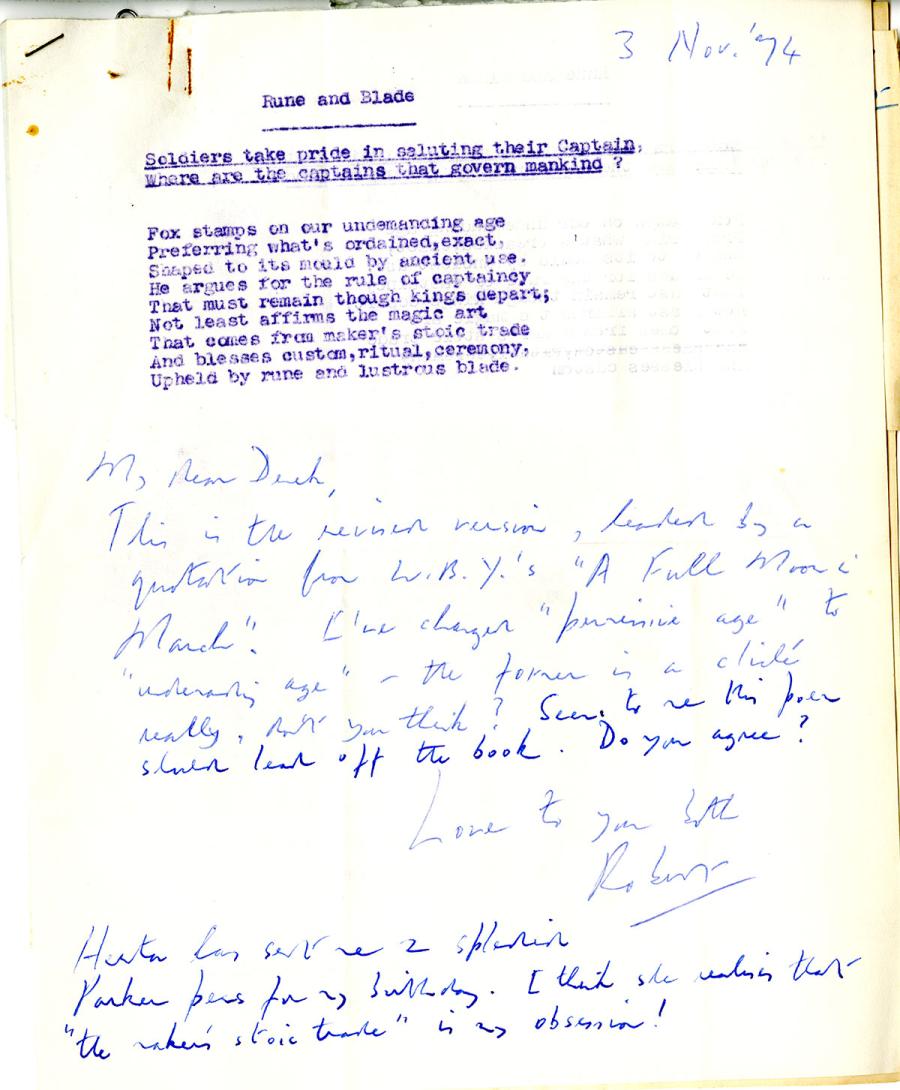 3 Nov. '74
Rune and Blade
Soldiers take pride in saluting their Captain,
Where are the captains that govern mankind ?
Fox stamps on our undemanding age
Preferring what's ordained,exact,
Shaped to its mould by ancient use.
He argues for the rule of captaincy
That must remain though kings depart;
Not least affirms the magic art
That comes from maker's stoic trade
And blesses custom,ritual,ceremony,
Upheld by rune and lustrous blade.
My dear Derek,
This is the revised version, headed by a
quotation from W.B.Y.'s "A Full Moon in
March". I've changed "permissive age" to
"undemanding age" - the former is a cliché
really, don't you think? Seems to me this poem
should lead off the book. Do you agree?
Love to you both
Robert
has sent me 2 splendid
Parker pens for my birthday. I think she realises that
"the maker's stoic trade" is my obsession!